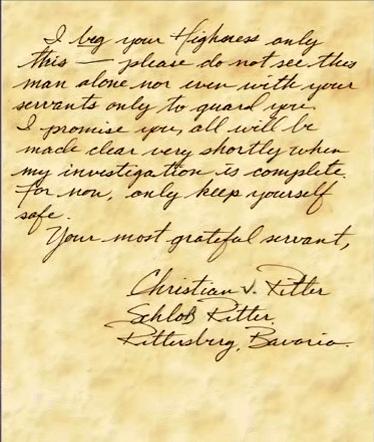 I beg your Highness only
this — please do not see this
man alone nor even with your
servants only to guard you.
I promise you, all will be
made clear very shortly when
my investigation is complete.
For now, only keep yourself
safe.
Your most grateful servant,
Christian v. Ritter
Schloß Ritter
Rittersberg, Bavaria.